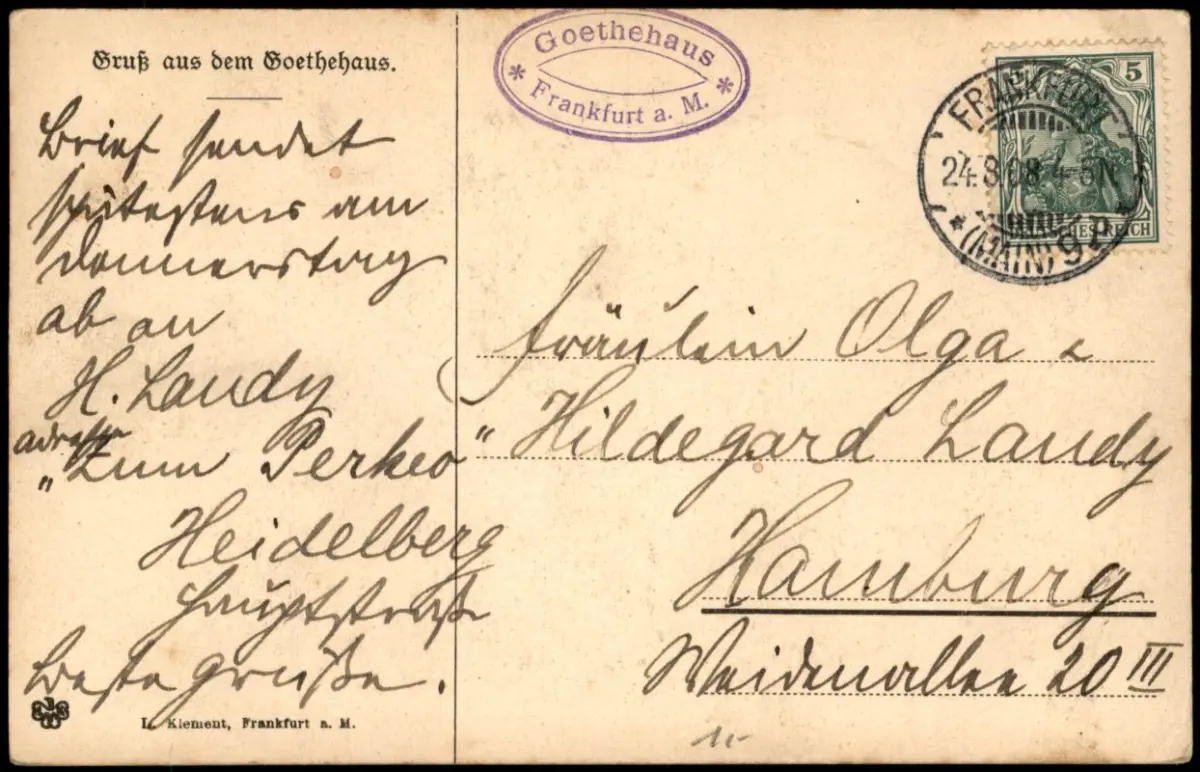 Gruß aus dem Goethehaus.
Brief sendet
spätestens am
Donnerstag
ab an
H. Landy
adresse
"Zum Perkeo"
Heidelberg
Hauptstraße
Beste Grüße.
L. Klement, Frankfurt a. M.
Goethehaus
* Frankfurt a. M. *
5
FRANKFURT
24.8.08. 4-5N
* (MAIN) 9
REICH
Fräulein Olga &
Hildegard Landy
Hamburg
Weidenallee 20 III